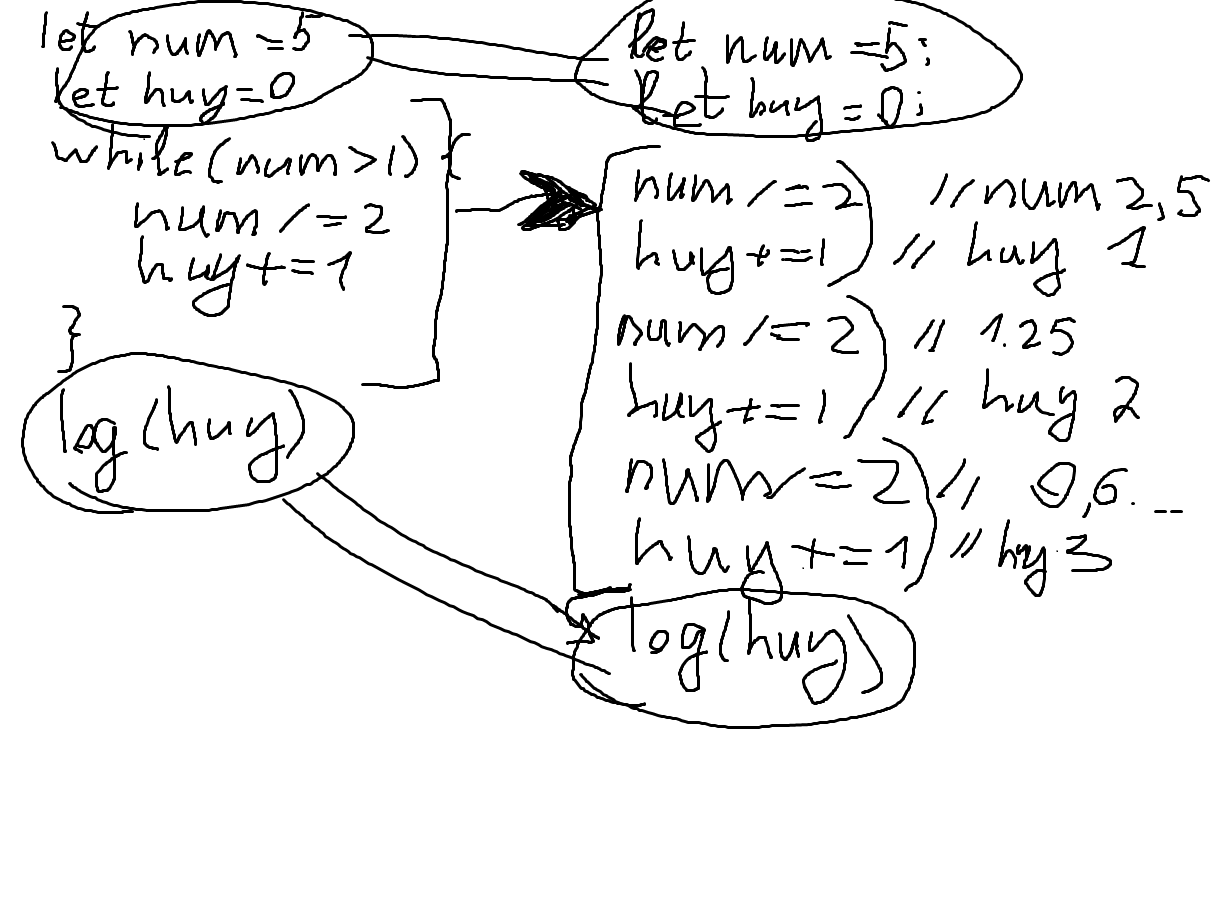 let num = 5
let huy = 0
while (num > 1) {
num /= 2
huy += 1
}
log(huy)
let num = 5;
let huy = 0;
num /= 2 // num 2,5
huy += 1 // huy 1
num /= 2 // 1.25
huy += 1 // huy 2
num /= 2 // 0,6...
huy += 1 // huy 3
log(huy)